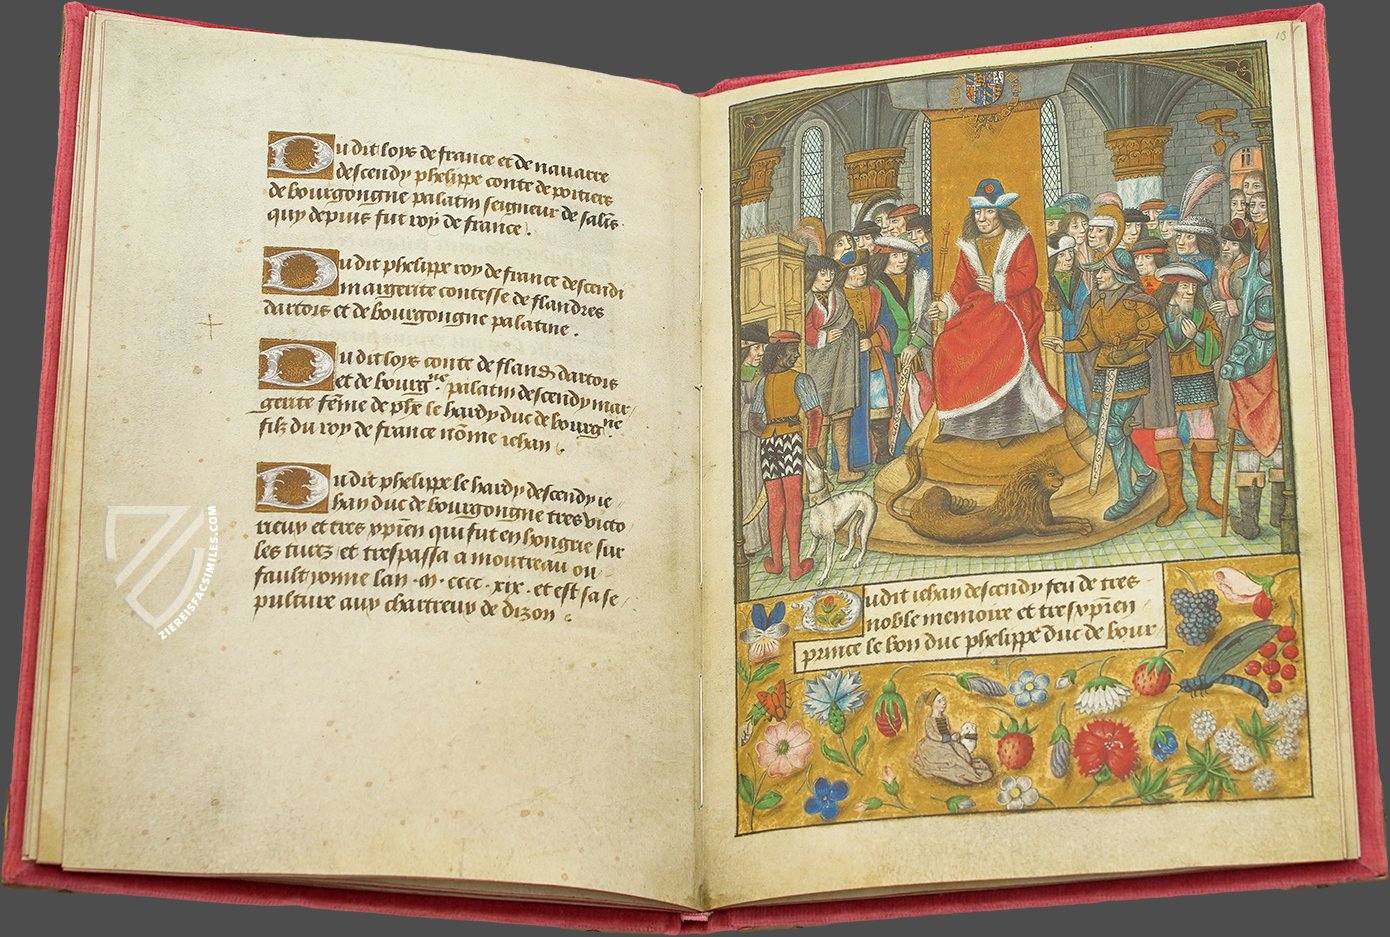 Du dit loys de france et de nauarre
descendy phelippe conte de poitiers
de bourgongne palatin seigneur de salis
quy depuis fut roy de france.
Du dit phelippe roy de france descendi
margerite contesse de flandres
dartois et de bourgongne palatine.
Du dit loys conte de fland dartois
et de bourg^ne palatin descendy mar-
gerite fe͂me de phe le hardy duc de bourg^ne
filz du roy de france no͂me iehan
Du dit phelippe le hardy descendy ie-
han duc de bourgongne tres victo
rieux et tres xpien qui fut en hongrie sur
les turcz et trespassa a moutreau ou
fault yonne lan .m. cccc .xix. et est sa se
pulture aux chartreux de dizon
13
Du dit iehan descendy feu de tres
noble memoire et tresxpien
prince le bon duc phelippe duc de bour
ZIEREISFACSIMILES.COM